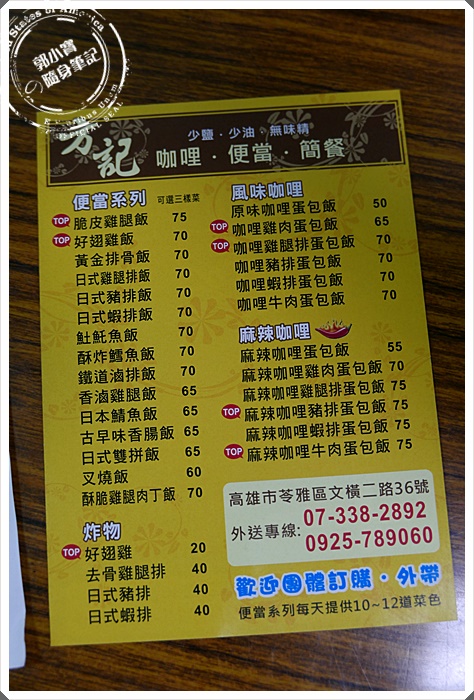 郭小寶
の隨身筆記
記
少鹽·少油·無味精
咖哩·便當·簡餐
便當系列 可選三樣菜
TOP 脆皮雞腿飯 75
TOP 好翅雞飯 70
黃金排骨飯 70
日式雞腿排飯 70
日式豬排飯 70
日式蝦排飯 70
魠魠魚飯 70
酥炸鱈魚飯 70
鐵道滷排飯 70
香滷雞腿飯 65
日本鯖魚飯 65
古早味香腸飯 65
日式雙拼飯 65
叉燒飯 60
酥脆雞腿肉丁飯 70
炸物
TOP 好翅雞 20
去骨雞腿排 40
日式豬排 40
日式蝦排 40
風味咖哩
原味咖哩蛋包飯 50
TOP 咖哩雞肉蛋包飯 65
TOP 咖哩雞腿排蛋包飯 70
咖哩豬排蛋包飯 70
咖哩蝦排蛋包飯 70
咖哩牛肉蛋包飯 70
麻辣咖哩
麻辣咖哩蛋包飯 55
麻辣咖哩雞肉蛋包飯 70
麻辣咖哩雞腿排蛋包飯 75
TOP 麻辣咖哩豬排蛋包飯 75
麻辣咖哩蝦排蛋包飯 75
TOP 麻辣咖哩牛肉蛋包飯 75
高雄市苓雅區文橫二路36號
外送專線: 07-338-2892
0925-789060
歡迎團體訂購·外帶
便當系列每天提供10~12道菜色